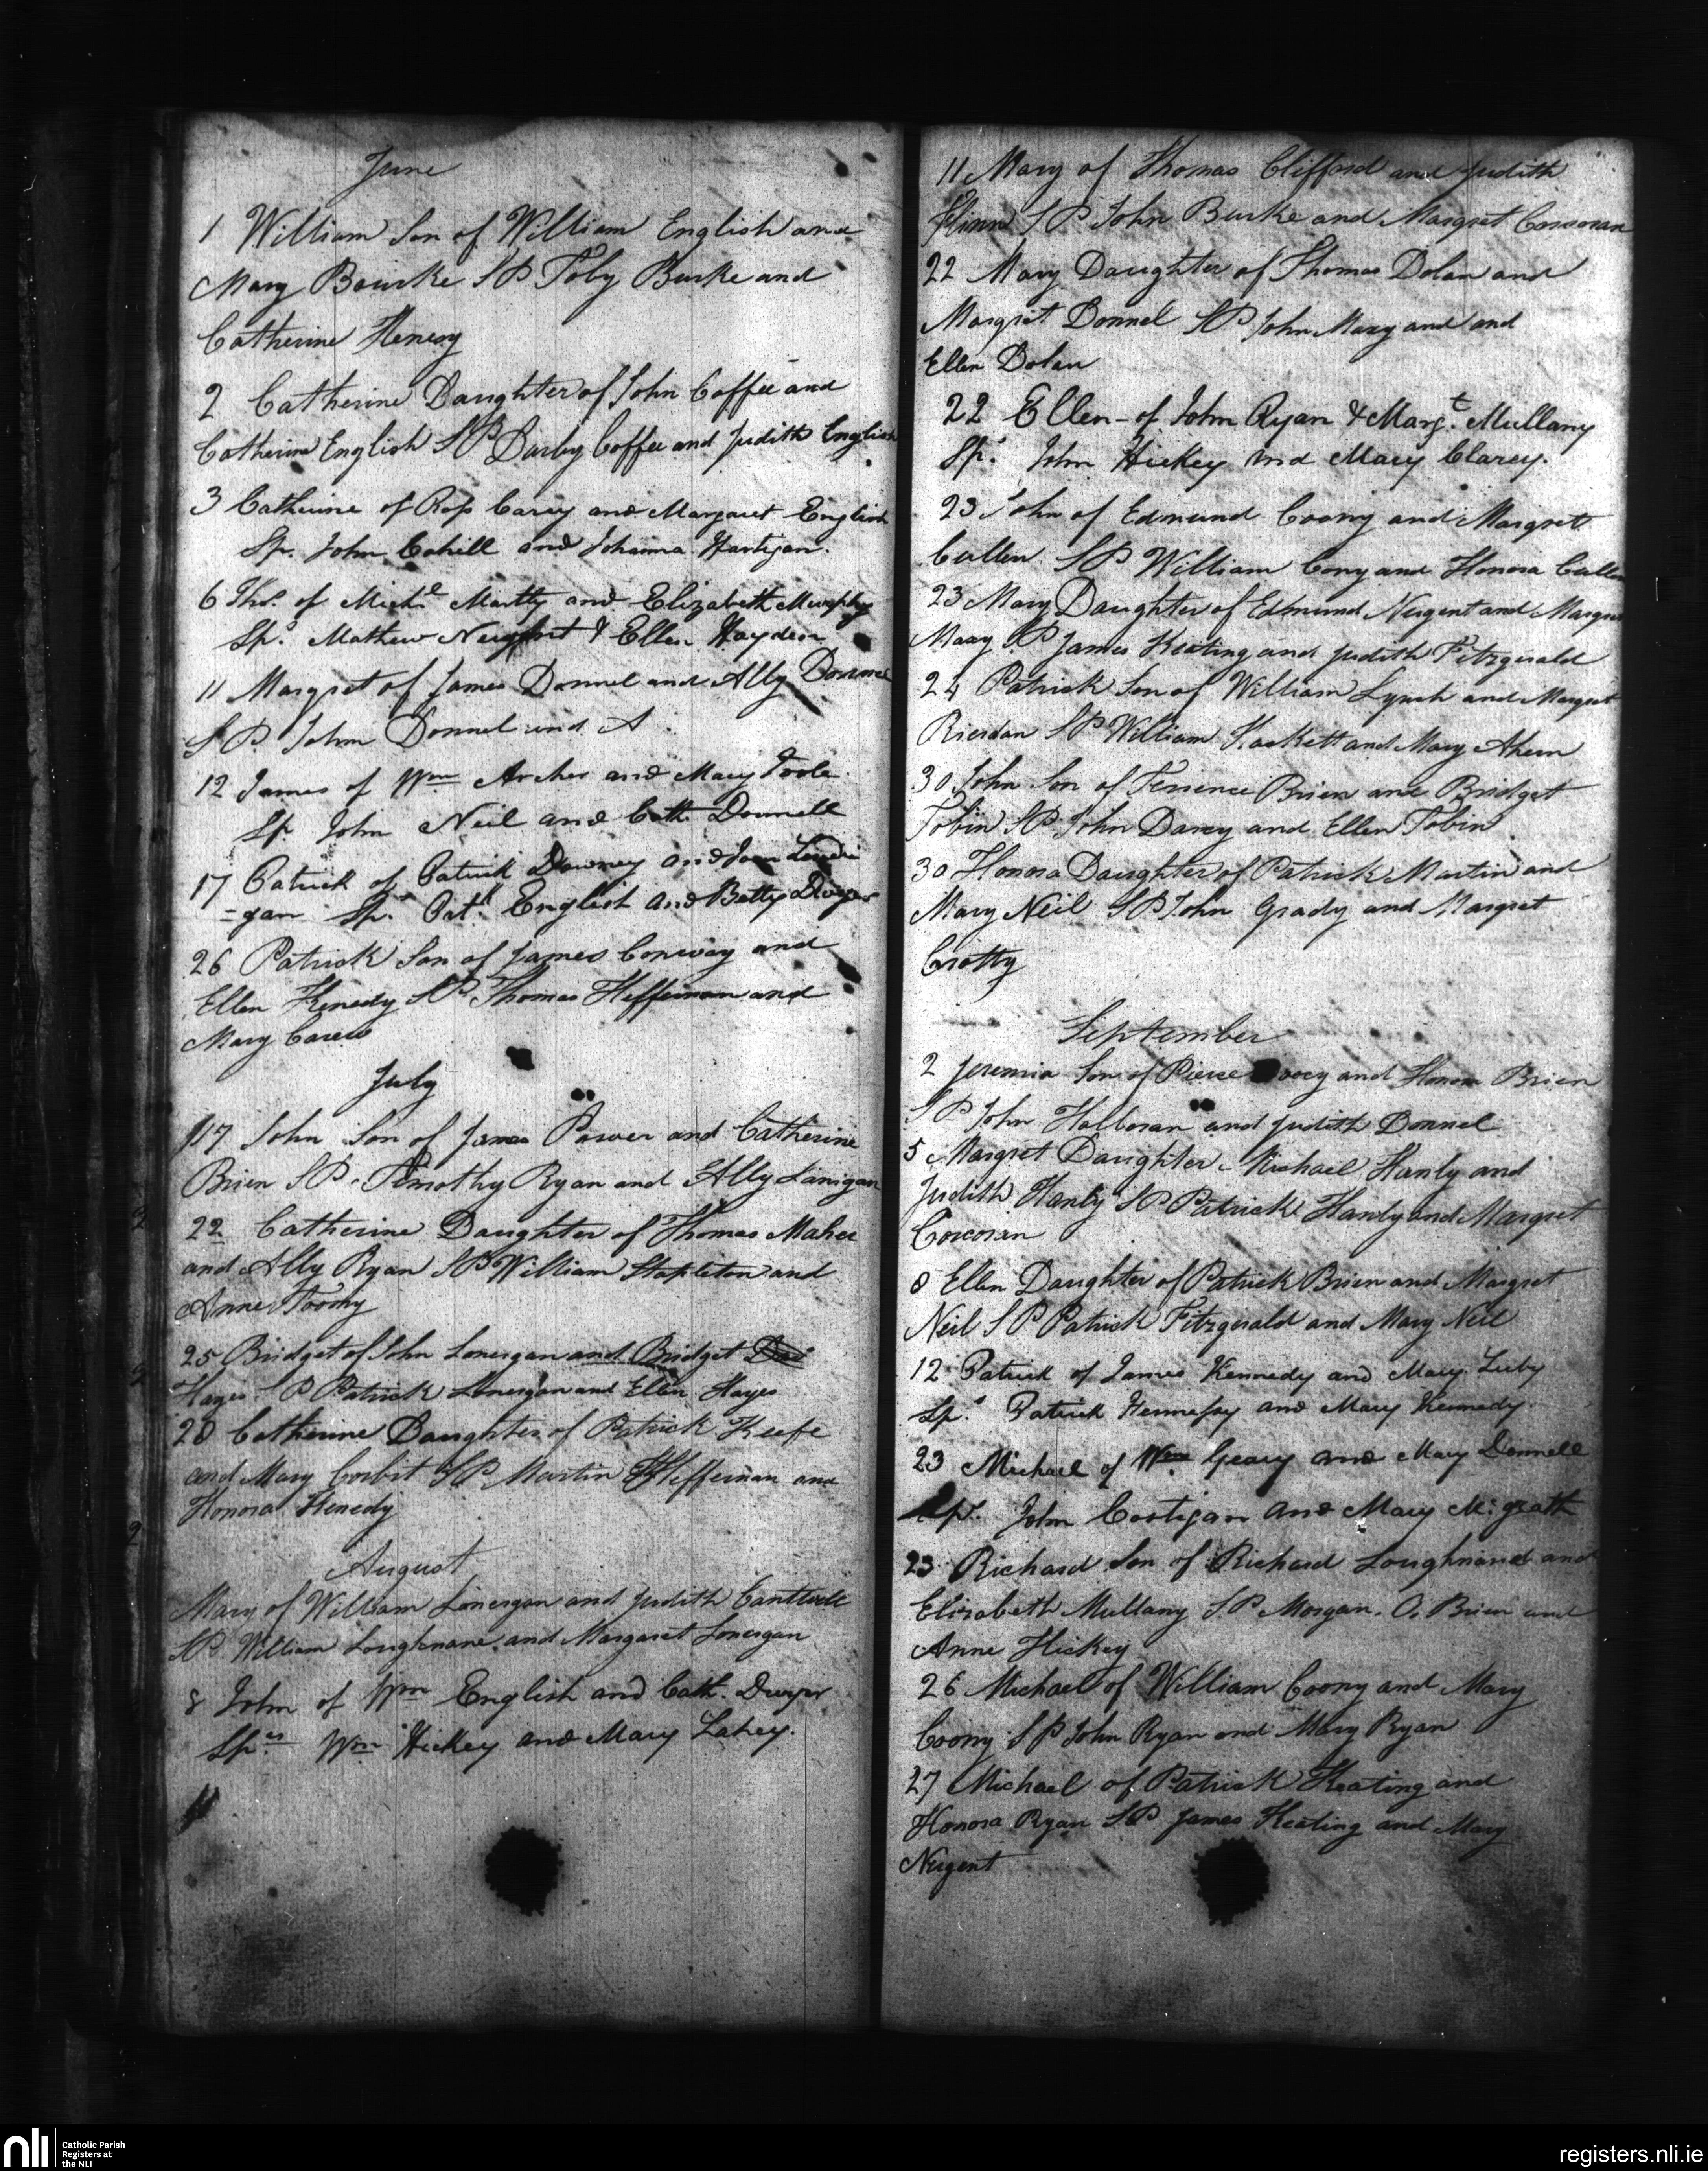 June
1 William Son of William English and
Mary Bourke SP Toby Burke and
Catherine Henesy
2 Catherine Daughter of John Coffee and
Catherine English SP Darby Coffee and Judith English
3 Catherine of Ross Carey and Margaret English
Sp. John Cahill and Johanna Hartigan.
6 Thos. of Michl Martty and Elizabeth Murphy
Sps Mathew & Ellen Hayden
11 Margret of James Donnel and Ally Donnel
SP. John Donnel and A
12 James of Wm Archer and Mary Toole.
Sp. John Neil and Cath. Donnell
17 Patrick of Patrick Downey and Joan
=gan Sps Patk English and Betty Dwyer
26 Patrick Son of James Conway and
Ellen Kenedy SP Thomas Heffernan and
Mary Carew
July
17 John Son of James Power and Catherine
Brien SP. Timothy Ryan and Ally Lanigan
22 Catherine Daughter of Thomas Maher
and Ally Ryan SP William Stapleton and
Anne Toomy
25 Bridget of John Lonergan and Bridget
Hayes SP Patrick Lonergan and Ellen Hayes
28 Catherine Daughter of Patrick Keefe
and Mary Corbit SP Martin Heffernan and
Honora Kenedy
August
Mary of William Lonergan and Judith
SP. William Loughnane and Margaret Lonergan
8 John of Wm English and Cath. Dwyer
Sprs Wm Hickey and Mary Lahey.
11 Mary of Thomas Clifford and Judith
Flinn SP John Burke and Margret Corcoran
22 Mary Daughter of Thomas Dolan and
Margret Donnel SP John Mary and and
Ellen Dolan
22 Ellen - of John Ryan & Margt. Mullany
Sps John Hickey and Mary Clarey.
23 John of Edmund Coony and Margret
Cullen SP William Cony and Honora Cullen
23 Mary Daughter of Edmund Nugent and Margret
Mary SP James Keating and Judith Fitzgerald
24 Patrick Son of William Lynch and Margret
Riordan SP William Hackett and Mary Ahern
30 John Son of Terrence Brien and Bridget
Tobin SP John Darcy and Ellen Tobin
30 Honora Daughter of Patrick Martin and
Mary Neil SP John Grady and Margret
Crotty
September
2 Jeremia Son of Pierce and Honora Brien
SP John Halloran and Judith Donnel
5 Margret Daughter Michael Hanly and
Judith Hanly SP Patrick Hanly and Margret
Corcoran
8 Ellen Daughter of Patrick Brien and Margret
Neil SP Patrick Fitzgerald and Mary Neil
12 Patrick of James Kennedy and Mary Luby
Sps Patrick Hennessy and Mary Kennedy.
23 Michael of Wm Geary and Mary Donnell
Sps. John Costigan and Mary Mcgrath
23 Richard Son of Richard Loughnand and
Elizabeth Mullany SP Morgan O Brien and
Anne Hickey
26 Michael of William Coony and Mary
Coony SP John Ryan and Mary Ryan
27 Michael of Patrick Keating and
Honora Ryan SP James Keating and Mary
Nugent
nli
Catholic Parish
Registers at
the NLI
registers.nli.ie